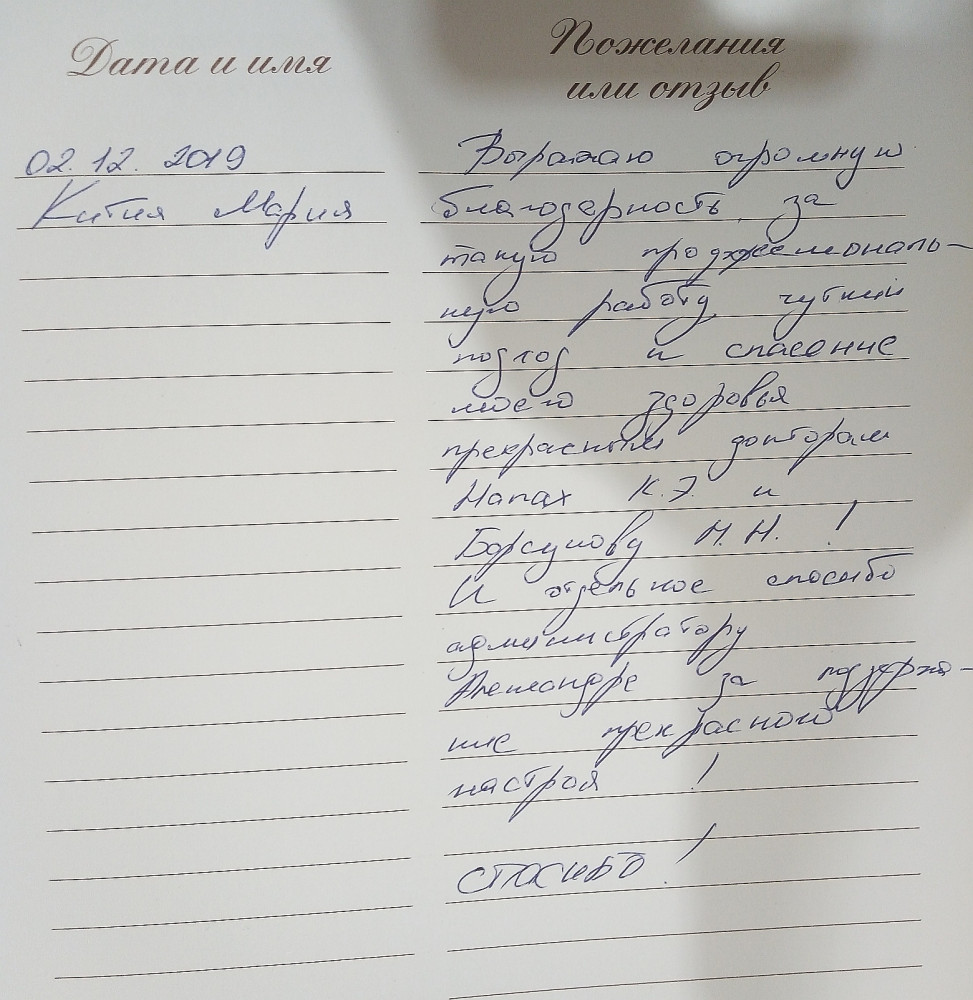 Дата и имя
Пожелания
или отзыв
02.12.2019
Мария
Выражаю огромную
благодарность за
такую профессиональ-
ную работу, чуткий
подход и спасение
моего здоровья
прекрасным докторам
Напах К.Э. и
Борсукову Н.Н. !
И отдельное спасибо
администратору
Александре за поддержа-
ние прекрасного
настроя !
СПАСИБО !